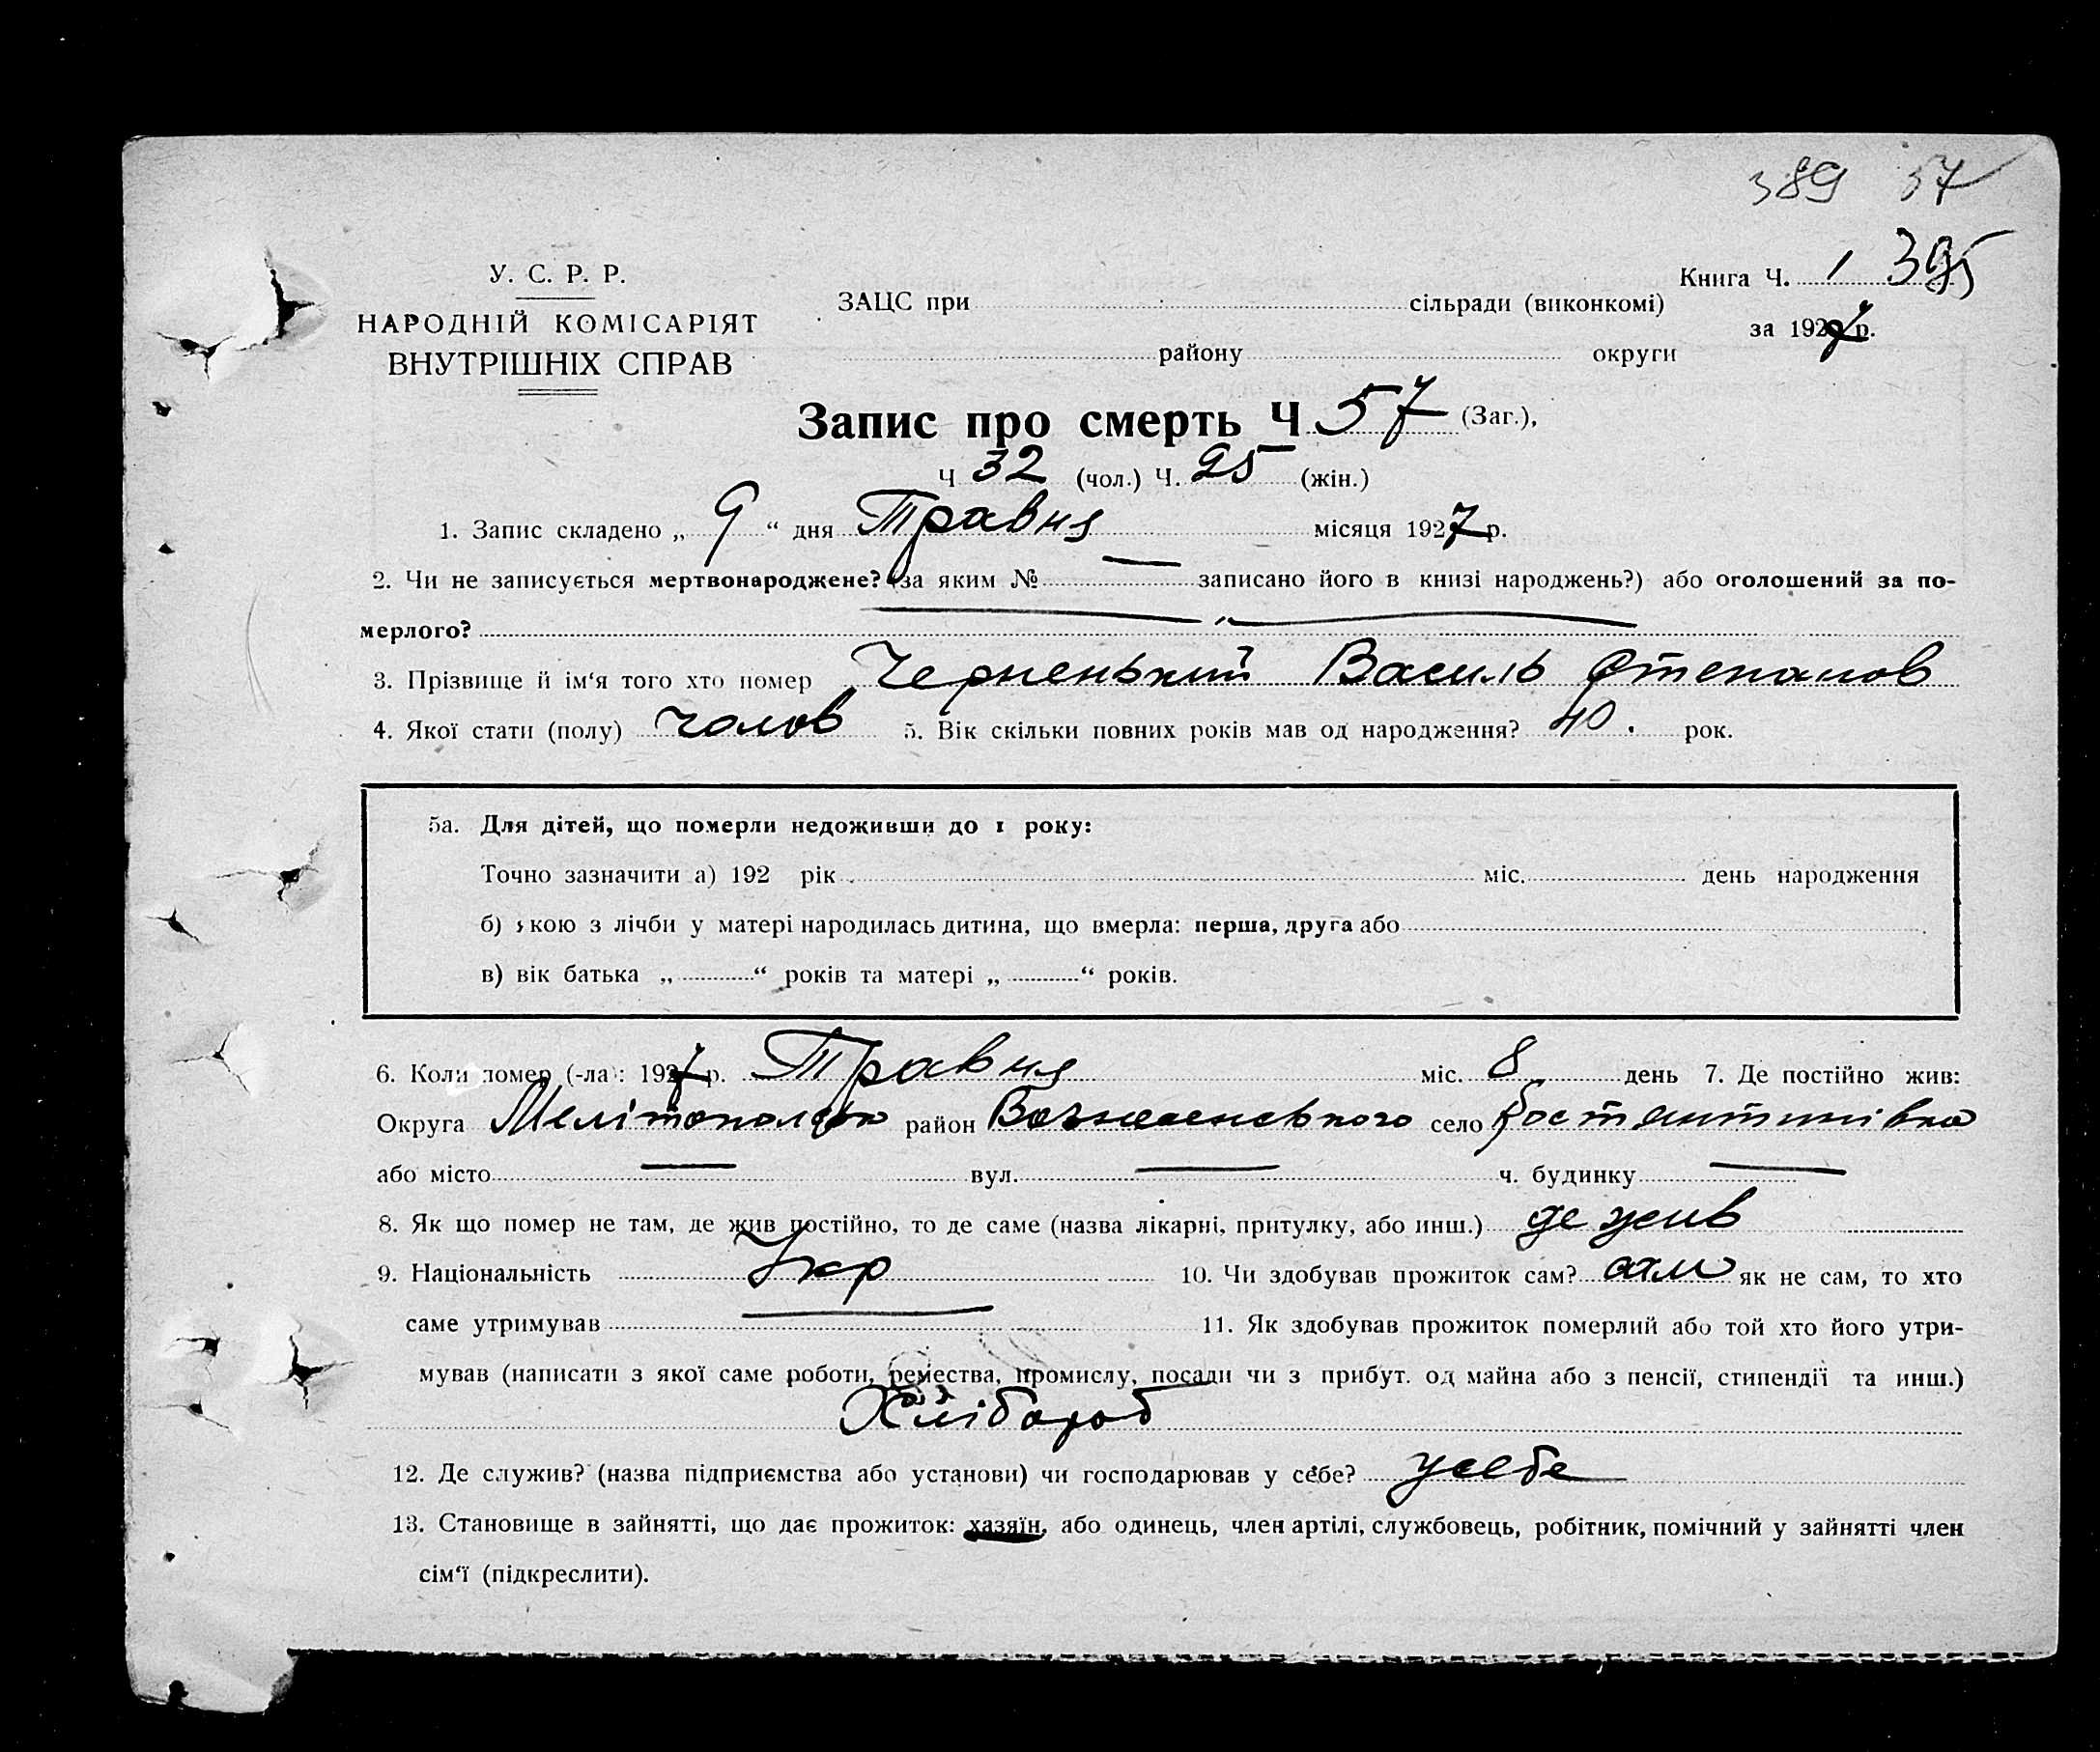 389 57
У. С. Р. Р.
НАРОДНІЙ КОМІСАРІЯТ
ВНУТРІШНІХ СПРАВ
Книга Ч. 1 395
за 1927 р.
ЗАЦС при сільради (виконкомі)
району округи
Запис про смерть Ч 57 (Заг.),
Ч 32 (чол.) Ч. 25 (жін.)
1. Запис складено „ 9 “ дня Травня місяця 1927 р.
2. Чи не записується мертвонароджене? (за яким № — записано його в книзі народжень?) або оголошений за по-
мерлого?
3. Прізвище й ім‘я того хто помер Черненький Василь Степанов
4. Якої стати (полу) чолов 5. Вік скільки повних років мав од народження? 40. рок.
5а. Для дітей, що померли недоживши до 1 року:
Точно зазначити а) 192 рік міс. день народження
б) якою з лічби у матері народилась дитина, що вмерла: перша, друга або
в) вік батька „ “ років та матері „ “ років.
6. Коли помер (-ла): 1927 р. Травня міс. 8 день 7. Де постійно жив:
Округа район Вознесенського село Костянтинівка
або місто — вул. — ч. будинку —
8. Як що помер не там, де жив постійно, то де саме (назва лікарні, притулку, або инш.) де жив
9. Національність Укр 10. Чи здобував прожиток сам? сам як не сам, то хто
саме утримував — 11. Як здобував прожиток померлий або той хто його утри-
мував (написати з якої саме роботи, ремества, промислу, посади чи з прибут. од майна або з пенсії, стипендії та инш.)
Хлібороб
12. Де служив? (назва підприємства або установи) чи господарював у себе? у себе
13. Становище в зайнятті, що дає прожиток: хазяїн, або одинець, член артілі, службовець, робітник, помічний у зайнятті член
сім‘ї (підкреслити).